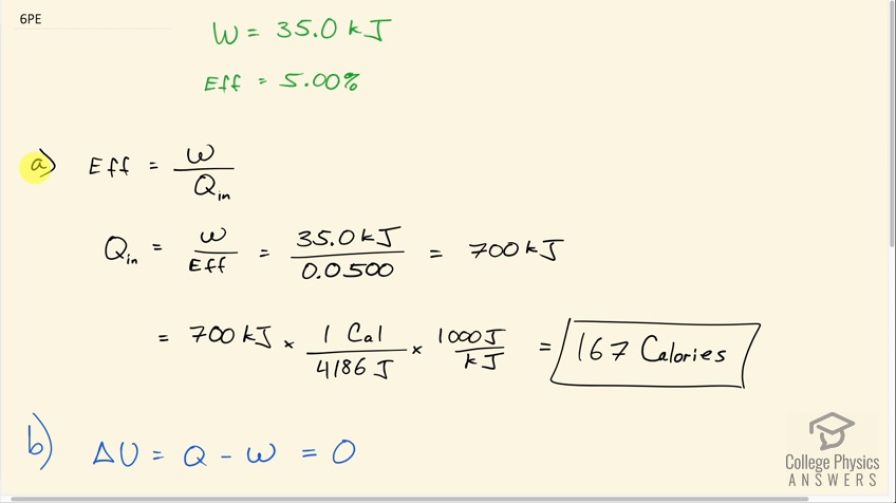 6PE
W = 35.0 kJ
Eff = 5.00%
a) Eff = W / Qin
Qin = W / Eff = 35.0 kJ / 0.0500 = 700 kJ
= 700 kJ × 1 Cal / 4186 J × 1000 J / kJ = 167 Calories
b) ΔU = Q - W = 0
College Physics
ANSWERS